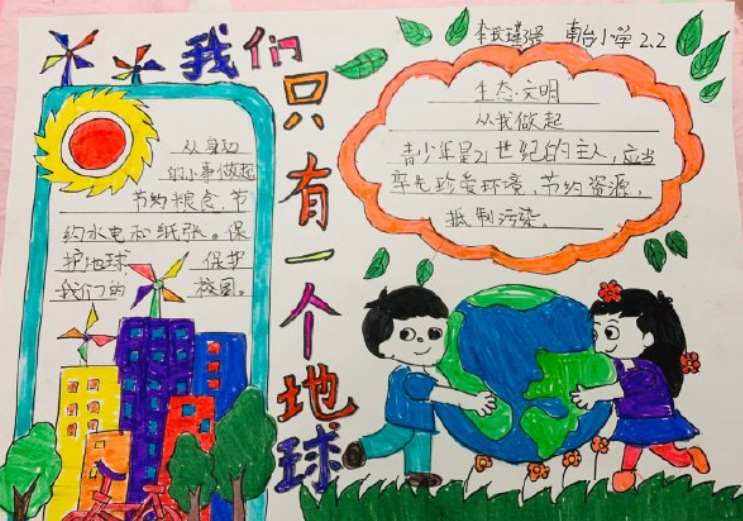 我们只有一个地球
南台小学 2.2
从身边
的小事做起
节约粮食、节
约水电和纸张。保
护地球 保护
我们的 校园。
生态·文明
从我做起
青少年是21世纪的主人,应当
率先珍爱环境,节约资源,
抵制污染。